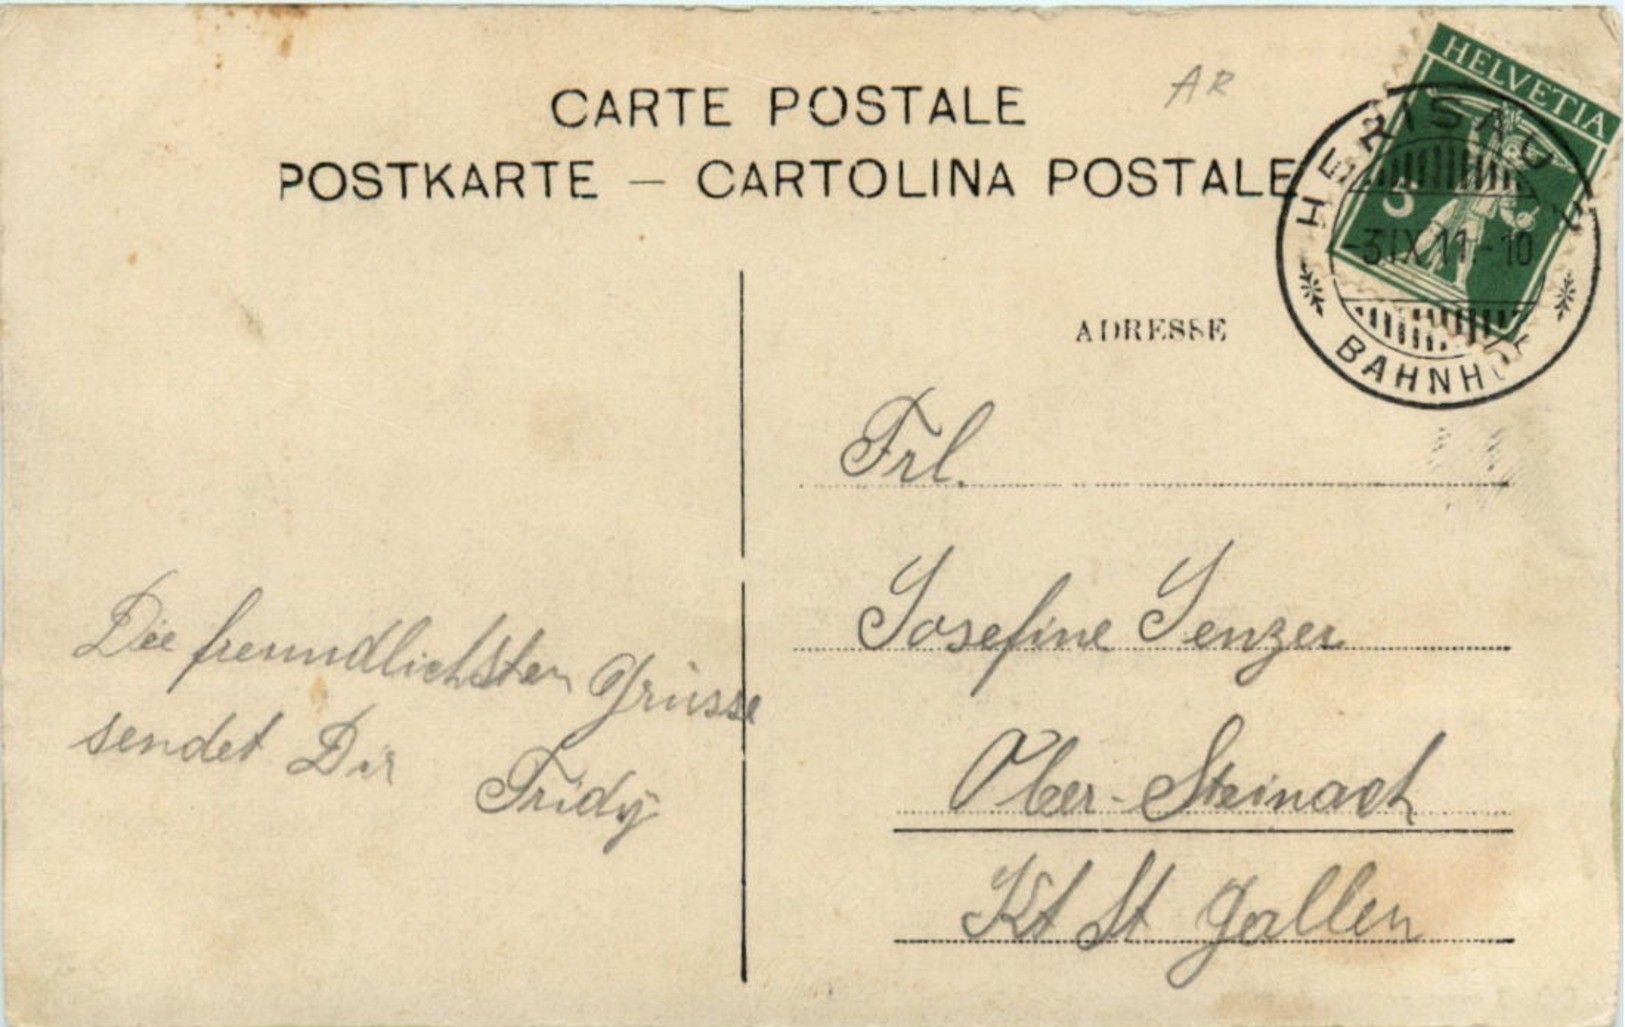 CARTE POSTALE
POSTKARTE — CARTOLINA POSTALE
AR
HELVETIA
5
HERISAU
-3.IX.11.-10
BAHNHOF
ADRESSE
Frl.
Josefine Senzer
Ober-Steinach
Kt St Gallen
Die freundlichsten Grüsse
sendet Dir
Fridy